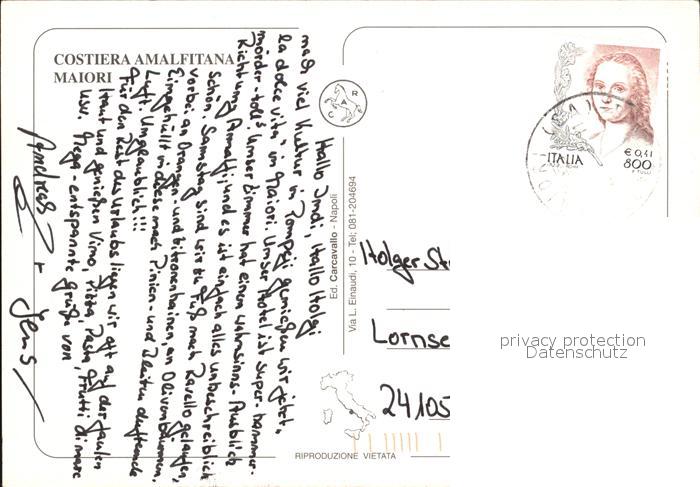 COSTIERA AMALFITANA
MAIORI
Hallo Imdi, Hallo Holgi
nach viel Kultur in Pompeji genießen wir jetzt
"la dolce vita" in Maiori. Unser Hotel ist super-hammer-
mörder-toll! Unser Zimmer hat einen wahnsinns-Ausblick
Richtung Amalfi, und es ist einfach alles unbeschreiblich
schön. Samstag sind wir zu Fuß nach Ravello gelaufen,
vorbei an Orangen- und Zitronenhainen, an Olivenbäumen,
Eingehüllt in diese nach Pinien- und Blüten duftende
Luft. Unglaublich!!!
Für den Rest des Urlaubs liegen wir oft auf der faulen
Haut und genießen Vino, Pizza, Pasta, Frutti di mare
usw. Mega-entspannte Grüße von
Andreas + Jens
C A R
Ed. Carcavallo - Napoli
Via L. Einaudi, 10 - Tel. 081-204694
ITALIA
€ 0,41
800
Holger St
Lornse
24105
privacy protection
Datenschutz
RIPRODUZIONE VIETATA